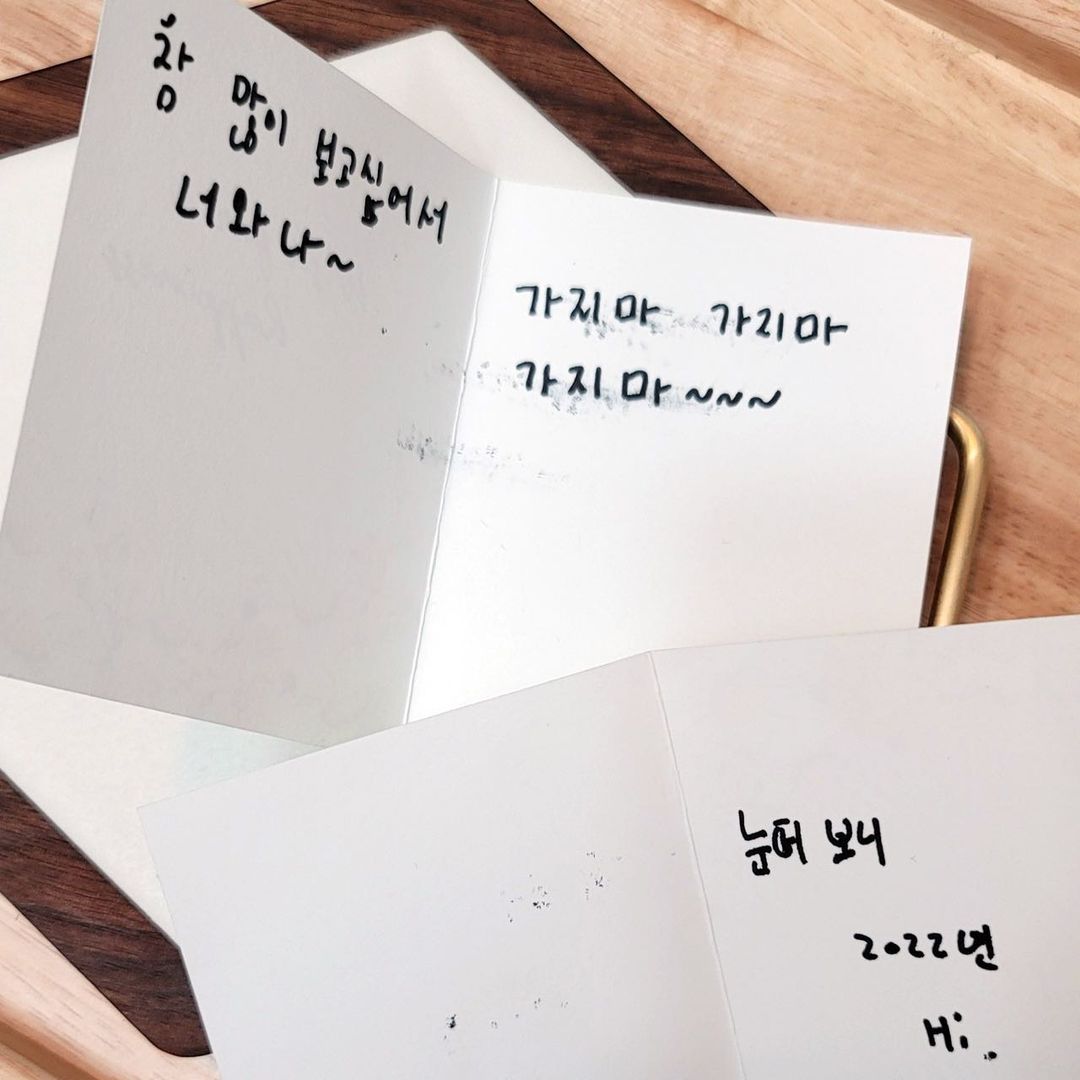 참 많이 보고싶어서
너와 나~
가지마 가지마
가지마~~~
눈떠 보니
2022년
Hi..